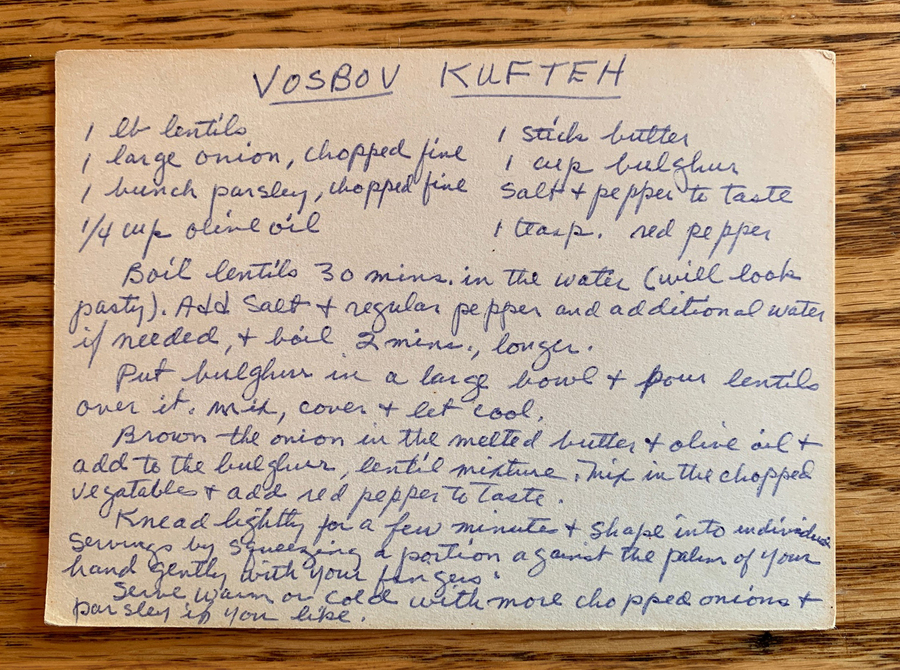 VOSBOV KUFTEH
1 lb lentils
1 large onion, chopped fine
1 bunch parsley, chopped fine
1/4 cup olive oil
1 stick butter
1 cup bulghur
Salt + pepper to taste
1 teasp. red pepper
Boil lentils 30 mins. in the water (will look
pasty). Add Salt + regular pepper and additional water
if needed, + boil 2 mins., longer.
Put bulghur in a large bowl + pour lentils
over it. Mix, cover + let cool.
Brown the onion in the melted butter + olive oil +
add to the bulghur, lentil mixture. Mix in the chopped
vegatables + add red pepper to taste.
Knead lightly for a few minutes + shape into individual
servings by squeezing a portion against the palm of your
hand gently with your fingers.
Serve warm or cold with more chopped onions +
parsley if you like.